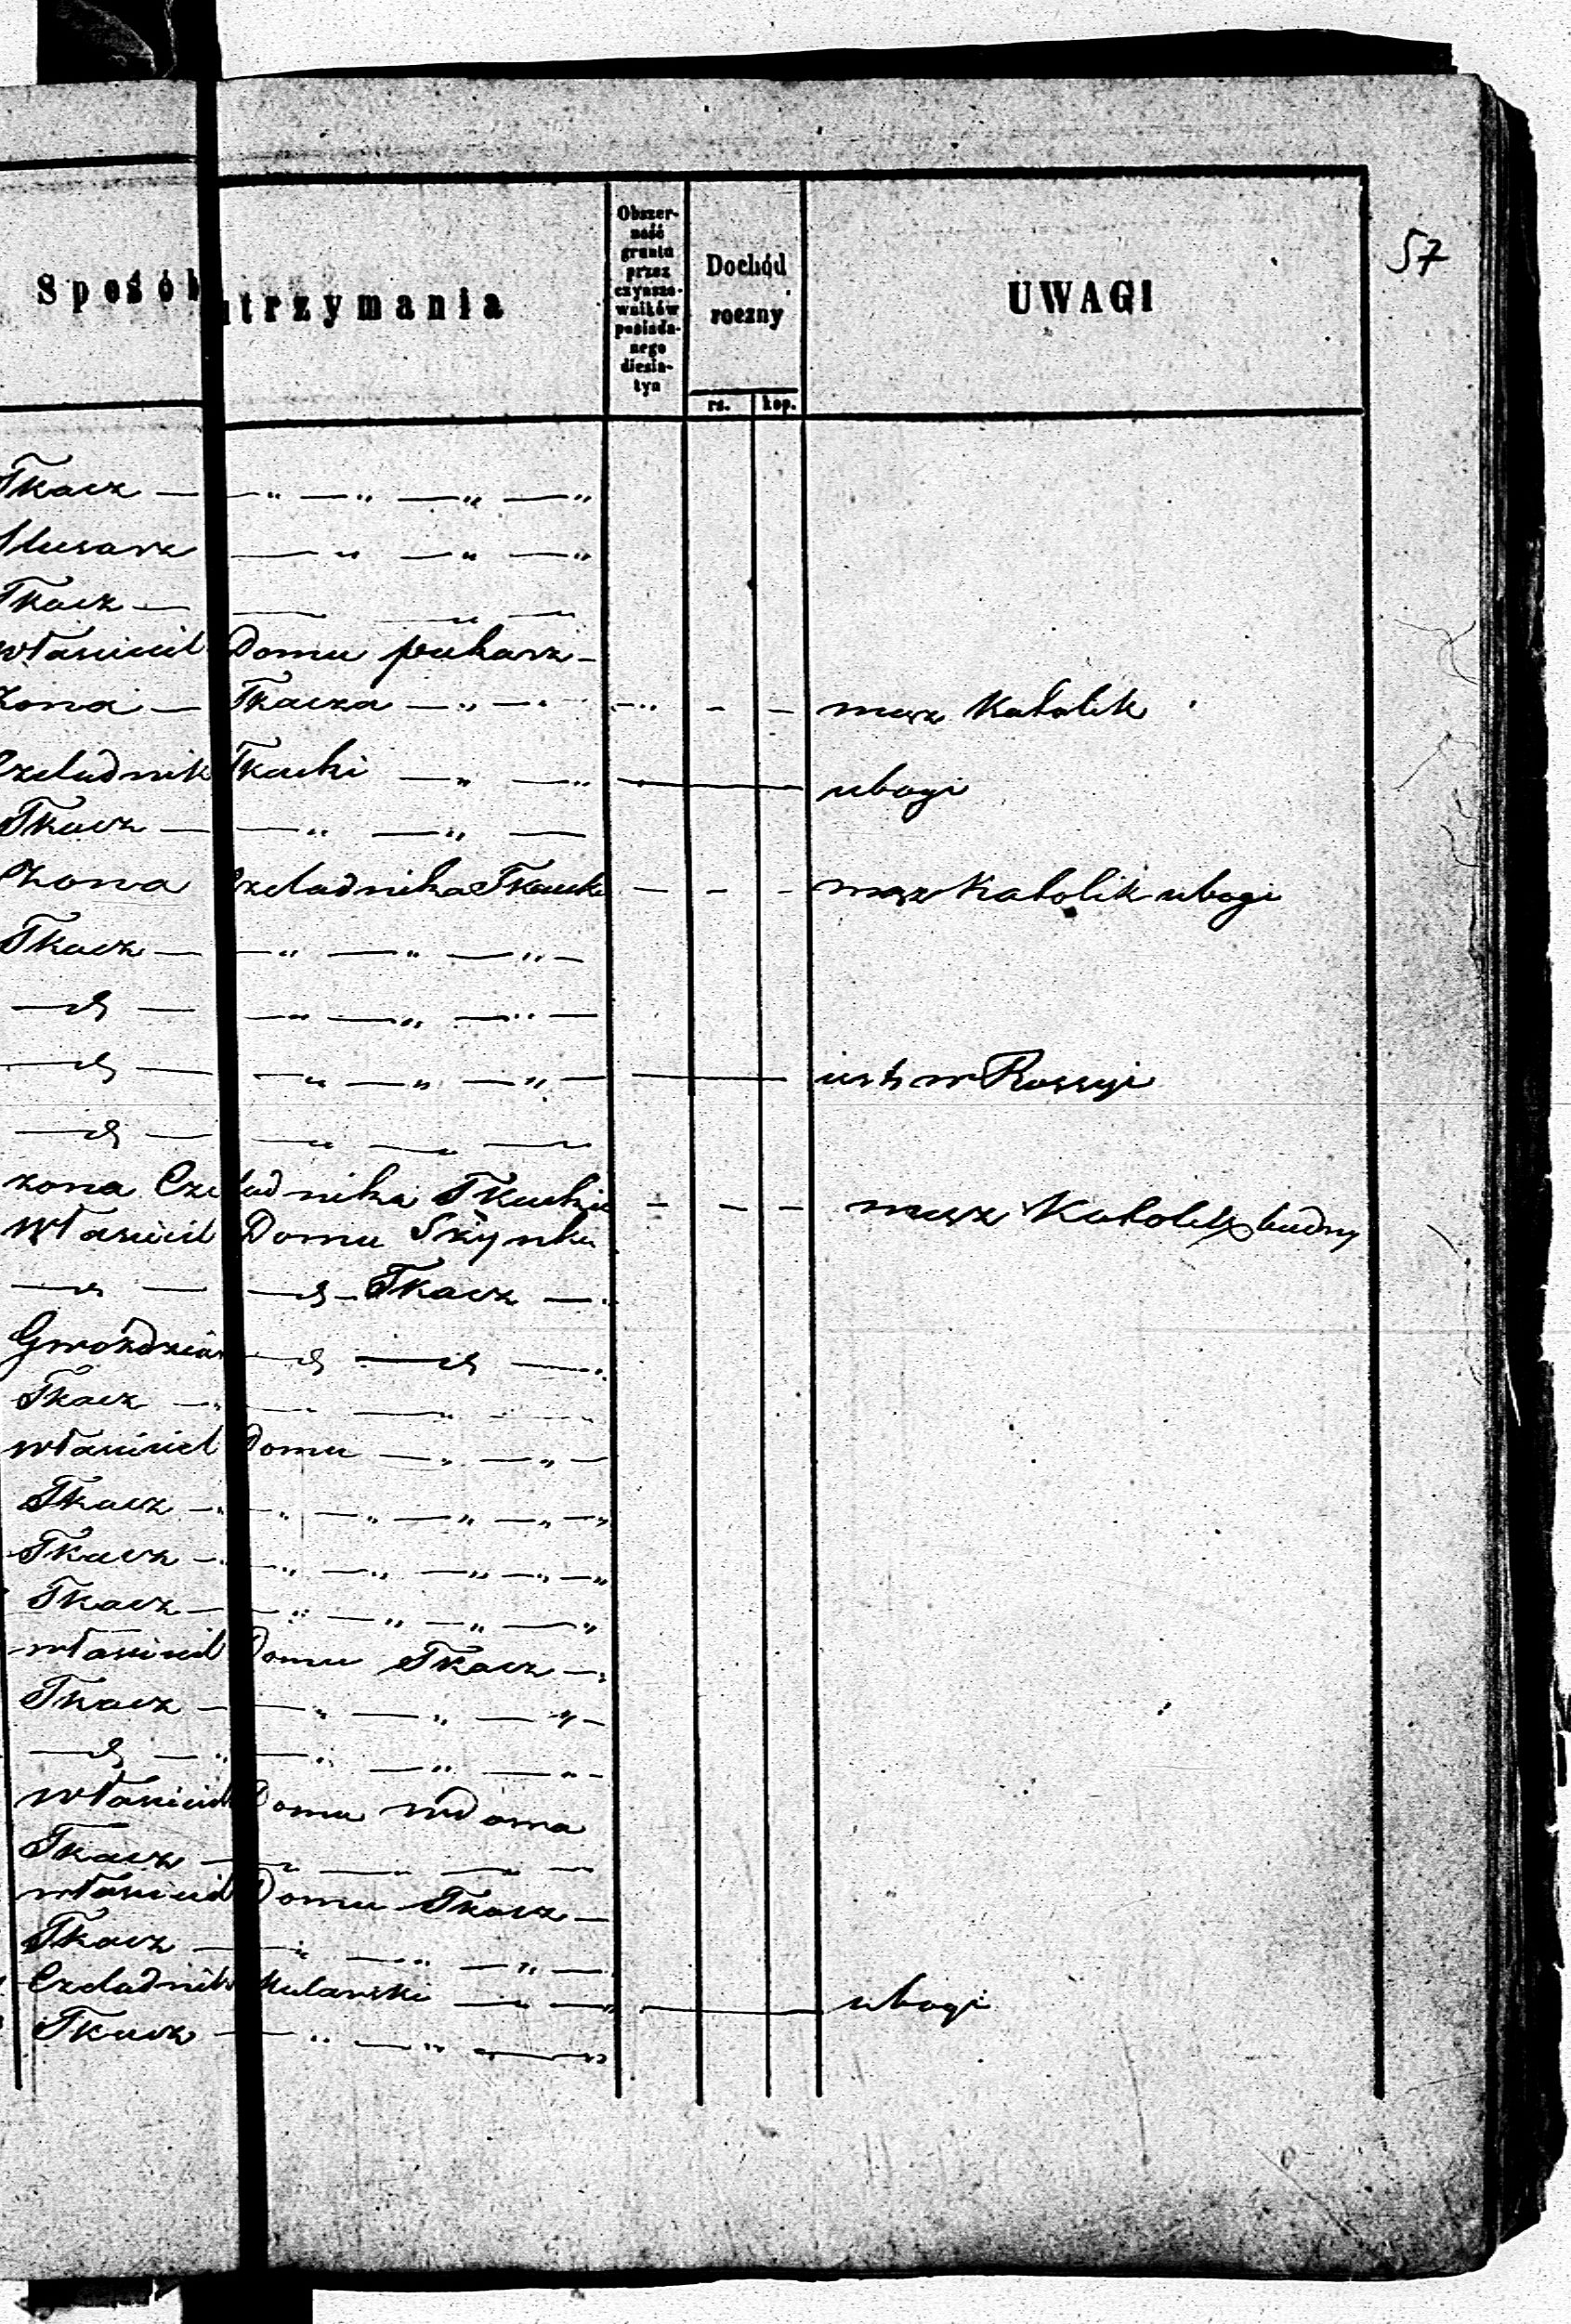 57
Sposób utrzymania
Obszer-
ność
gruntu
przez
czynszo-
wników
posiada-
nego
diesia-
tyn
Dochód
roczny
rs. kop.
UWAGI
Tkacz — — „ — „ — „ — „
Slusarz — „ — „ — „
Tkacz — — „ —
własciciel Domu piekarz —
Zona — Tkacza — „ — „ — „ - - mąz Katolik
Czeladnik Tkacki — „ — „ — ubogi
Tkacz — — „ — „ —
Zona Czeladnika Tkacki — - - mąz Katolik ubogi
Tkacz — — „ — „ — „ —
— d — — „ — „ — „ —
— d — — „ — „ — „ — — iest w Rossyi
— d — — „ — „ —
zona Czeladnika Tkackie - - - mąz Katolik
Własciciel Domu
— d — — d — Tkacz — „
Gwoździa — d — d — „
Tkacz — „ — — „ —
własciciel Domu — „ — „ —
Tkacz — „ — „ — „ — „ — „ — „
Tkacz — „ — „ — „ — „ — „ — „
Tkacz — — „ — „ — „ — „
własciciel Domu Tkacz — „
Tkacz — — „ — „ — „ —
— d — „ — „ — „ — „ -
własciciel Domu wdowa
Tkacz — — „ — „ — „ —
własciciel Domu Tkacz —
Tkacz — — „ — „ — „ —
Czeladnik Mularski — „ — „ — ubogi
Tkacz — — „ — „ — „